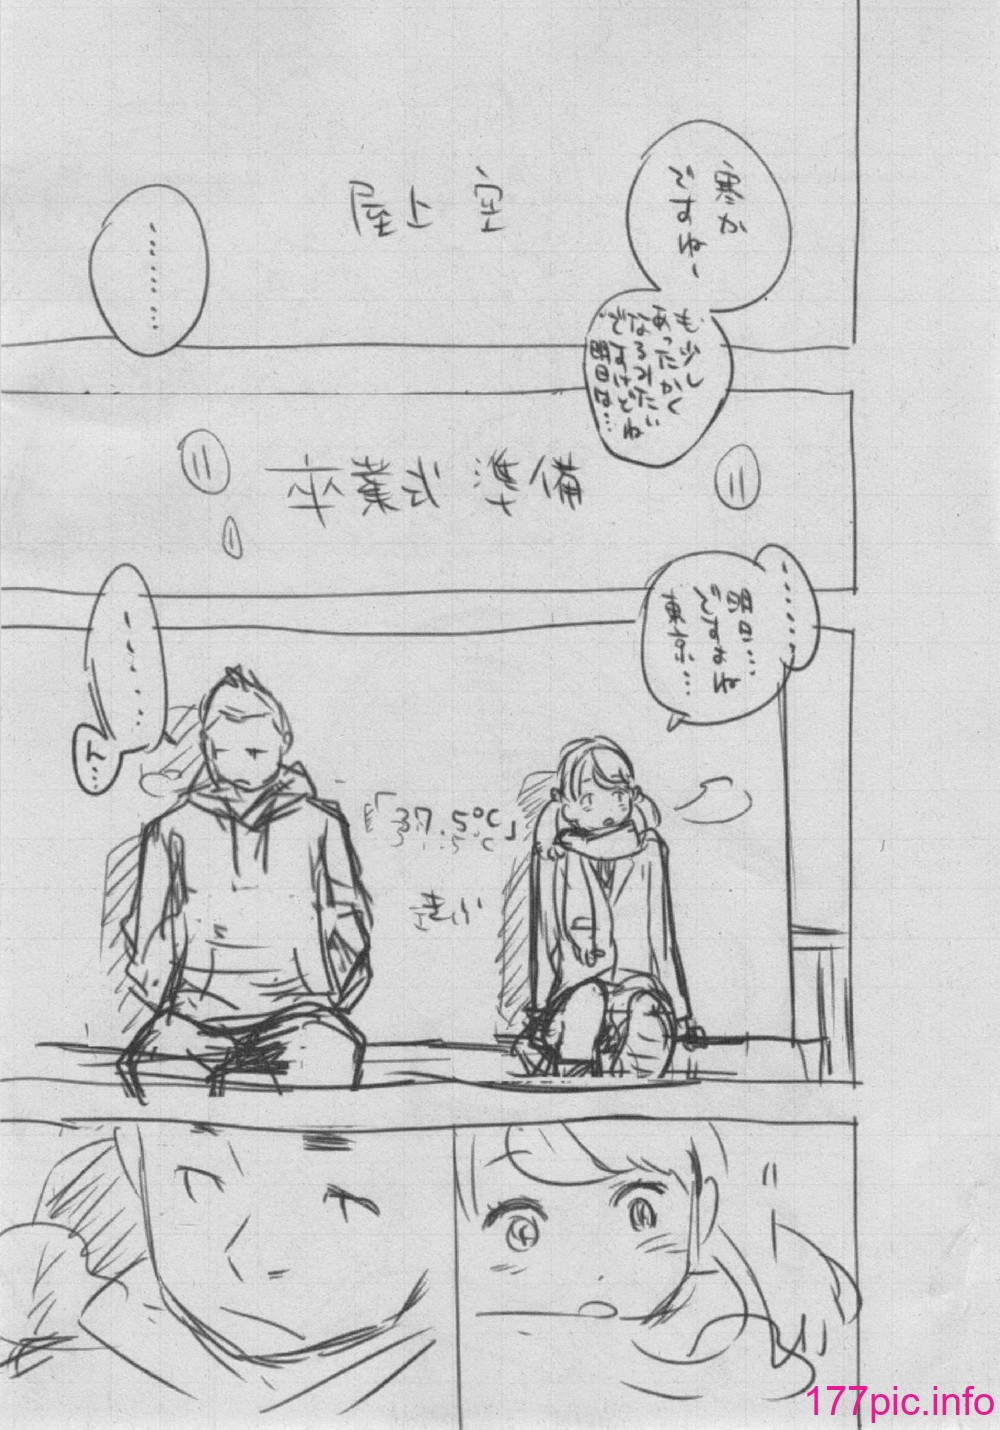 寒か
ですねー
も少し
あったかく
なるみたい
ですけどね
明日は…
屋上 空
………
卒業式 準備
〃
〃
………
明日…
ですよね
東京…
………
ん…
「37.5℃」
きぶ
〃
177pic.info